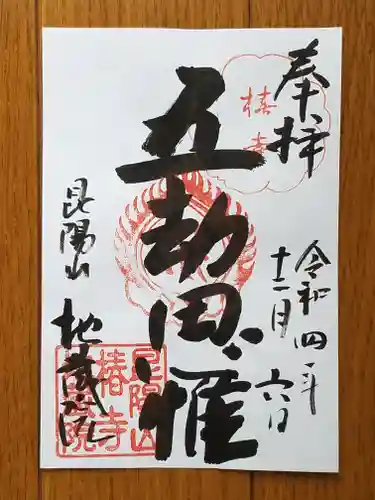 奉拝
椿寺
令和四年
十二月六日
五劫思惟
昆陽山
地蔵院
昆陽山
椿寺
地蔵院